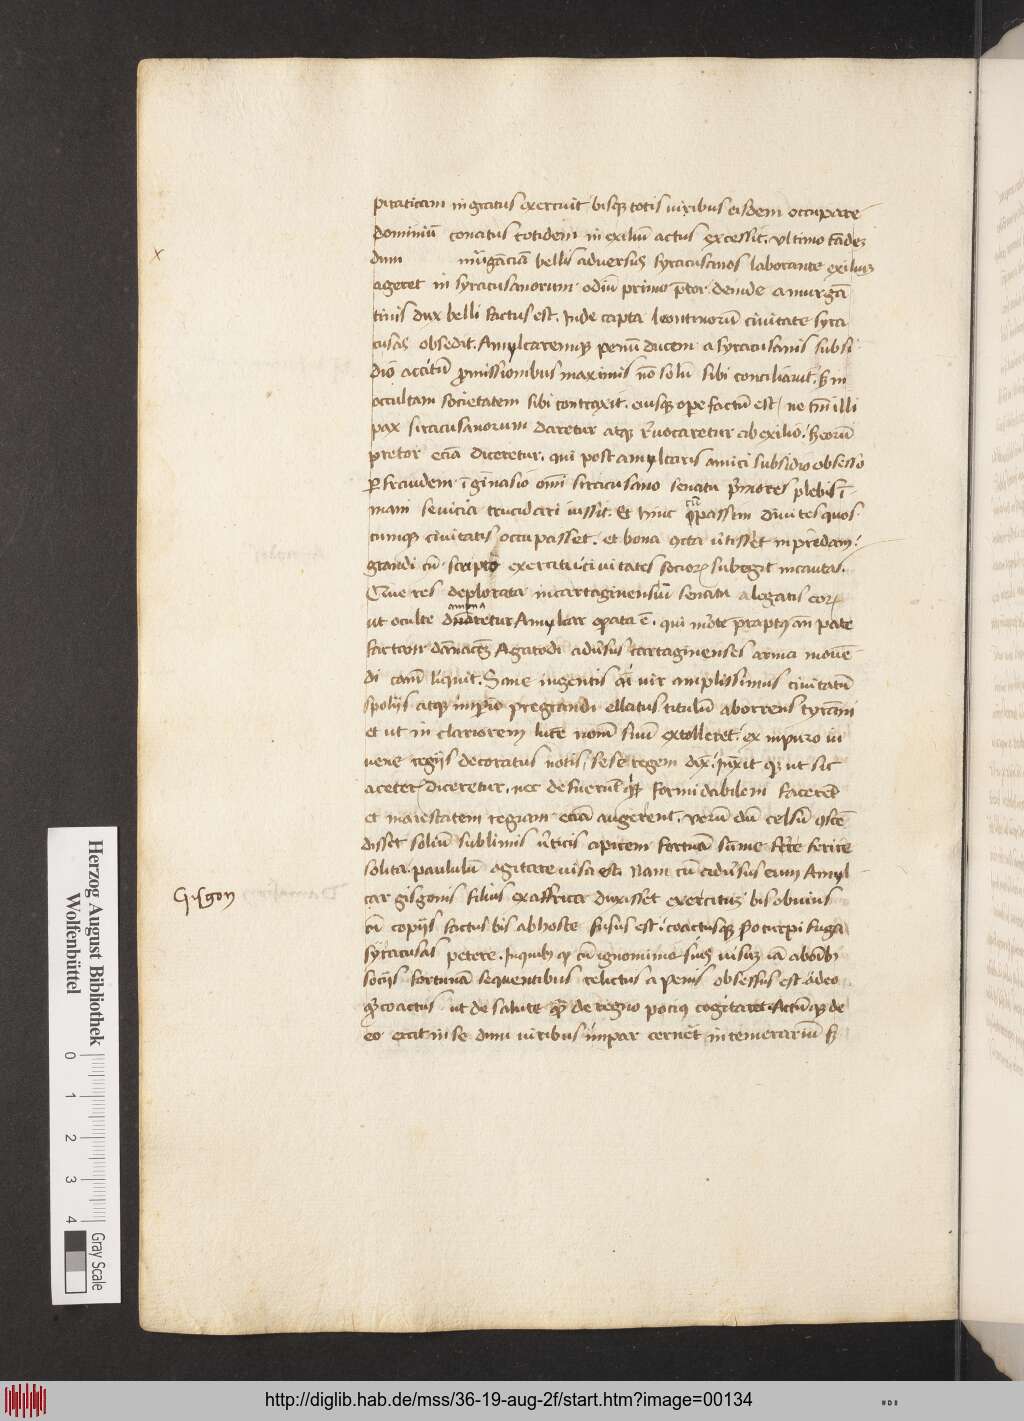 piraticam ingratus exercuit bisqꝫ totis viribus eisdem occupare
dominiū conatus totidem in exiliū actus excessit. vltimo tādeꝫ
dum murgāciā belli adversus syracusanos laborante exiliuꝫ
ageret in syracusanorum odiū primo p̄tor deinde a murgā
tinis dux belli factus est. Inde capta leontinorū civitate syra
cusas obsedit. Amylcaremqꝫ penū ducem a syracusanis subsi
dio accitū promissionibus maximis nō solū sibi conciliavit. sꝫ in
occultam societatem sibi contraxit. eiusqꝫ ope factū est / ne tm̄ illi
pax siracusanorum daretur atqꝫ revocaretur ab exilio. sꝫ eorū
pretor eciā diceretur. qui post amylcaris amici subsidio obsesso
ꝑ fraudem ī ginasio omī siracusano senatu pͥmores plebis ī
mani sevicia trucidari iussit. Et hinc passim divites quos
cumqꝫ civitatis occupasset. et bona vertisset in predam.
grandi cū scripto exercitu civitates socioꝝ subegit incautas.
Que res deplorata in cartaginensiū senatu a legatis eoꝝ
ut oculte dn̄aretur Amylcar opata ē. qui morte prapt an pate
dānacōꝫ Agatodi adversus cartaginenses arma movē
di cām liquit. Sane ingentis vir amplissimus civitatū
spoliis atqꝫ imꝑio pregrandi ellatus titulū aborrens tyrāni
et ut in clariorem lucē nomē suū extolleret. ex impuro iu
vene regiis decoratus notis. sese regem dix. iuxit qꝫ ut sic
a ceteꝝ diceretur. nec defuerūt formidabilem facerēt
et maiestatem regiam eciā augerent. Verū dū celsū ꝯscē
disset soliū sublimis verticis apicem fortunā sūme ferire
solita. paululū agitare visa est. Nam cū adversus eum Amyl
car gisgonis filius ex affrica duxisset exercituꝫ bis obvius
cū copiis factus bis ab hoste fusus est. coactusqꝫ ꝓ turpi fuga
syracusas petere. In quibꝫ cū ignominia suis visuꝫ iā ab oībꝫ
sociis fortunā sequentibus relictus a penis obsessus est. adeo
coactus ut de salute quā de regno pocius cogitaret. Actūqꝫ de
eo erat in se dum viribus impar cerneret in temerariū sꝫ
x
Gisgon
Herzog August Bibliothek
Wolfenbüttel
0 1 2 3 4
Gray Scale
http://diglib.hab.de/mss/36-19-aug-2f/start.htm?image=00134